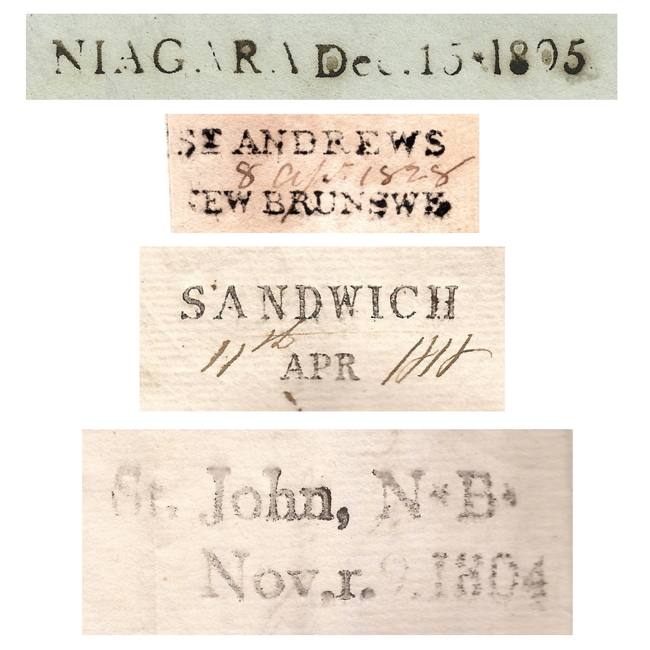 NIAGARA Dec. 15 * 1805
ST ANDREWS
8 Apr 1828
NEW BRUNSWK
SANDWICH
11th APR 1818
St. John, N*B*
Nov.r. 9. 1804